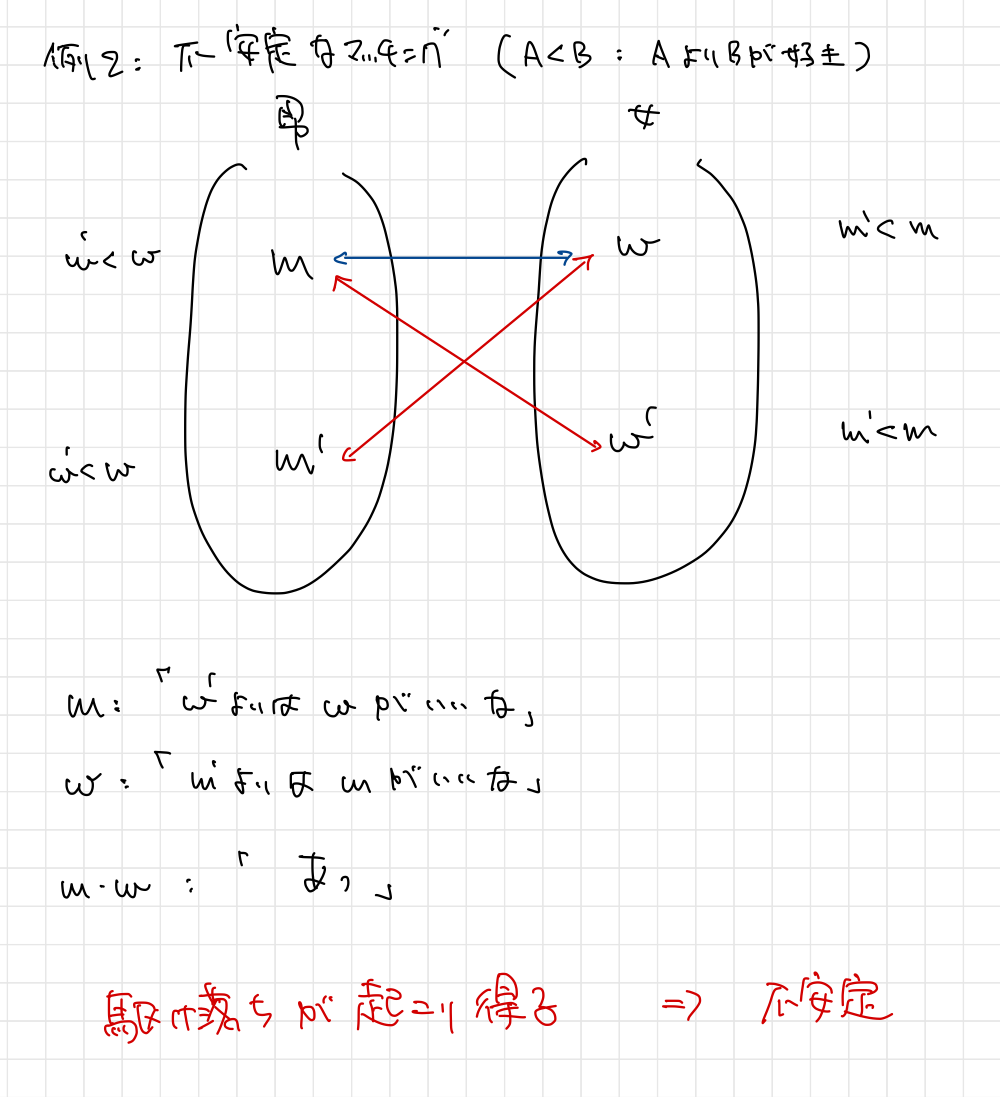 例2: 不安定なマッチング (A<B : AよりBが好き)
男 女
w'<w m w m'<m
w'<w m' w' m'<m
m: 「w'よりはwがいいな」
w: 「m'よりはmがいいな」
m・w : 「あっ」
駆け落ちが起こり得る ⇒ 不安定